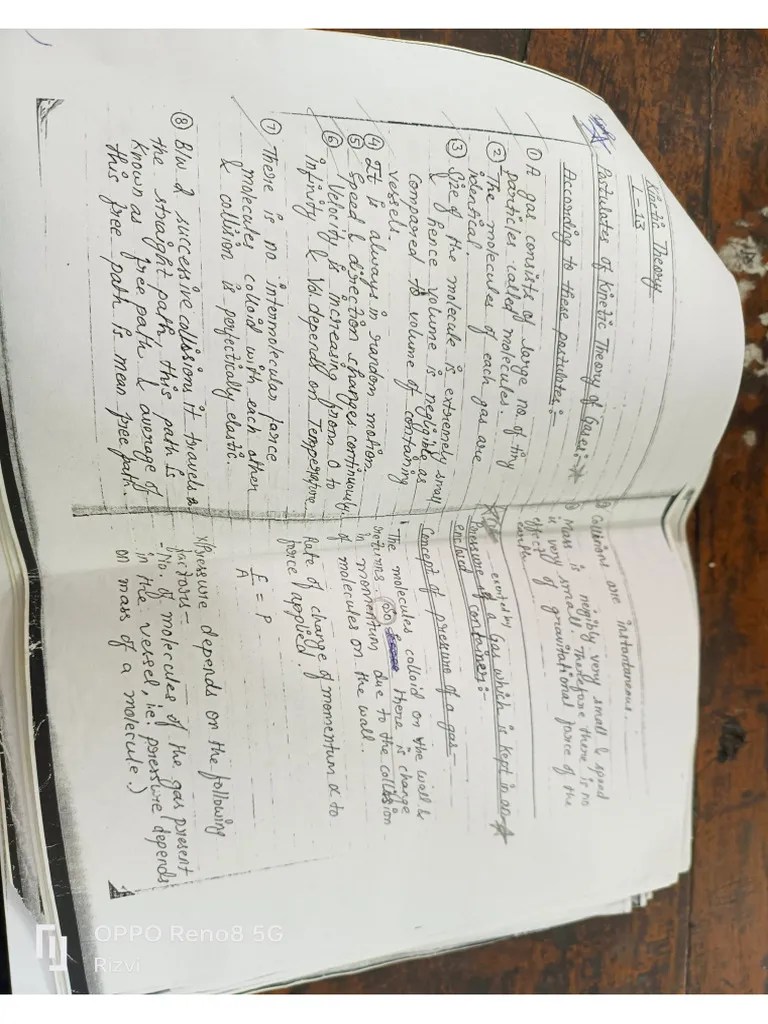 Kinetic Theory
L-13
Postulates of Kinetic Theory of Gases:-
According to these postulates:-
① A gas consists of large no. of tiny
particles called molecules.
② The molecules of each gas are
identical.
③ Size of the molecule is extremely small
& hence volume is negligible as
compared to volume of containing
vessels.
④ It is always in random motion.
⑤ Speed & direction changes continuously.
⑥ Velocity is increasing from 0 to
infinity & Vel. depends on Temperature
⑦ There is no intermolecular force
molecules colloid with each other
& collision is perfectically elastic.
⑧ B/w 2 successive collisions it travels a
the straight path, this path is
known as free path & average of
this free path is mean free path.
Collisions are instantaneous.
Mass is neglibly very small & speed
is very small. Therefore there is no
effect of gravitational force of the
earth.
exerted by
Pressure of a Gas which is kept in an
enclosed container:-
Concept of pressure of a gas-
The molecules colloid on the wall &
returns so there is change
in momentum due to the collision
of molecules on the wall.
Rate of change of momentum ∝ to
force applied.
F/A = P
Pressure depends on the following
factors-
- No. of molecules of the gas present
in the vessel, i.e. pressure depends
on mass of a molecule.)
OPPO Reno8 5G
Rizvi